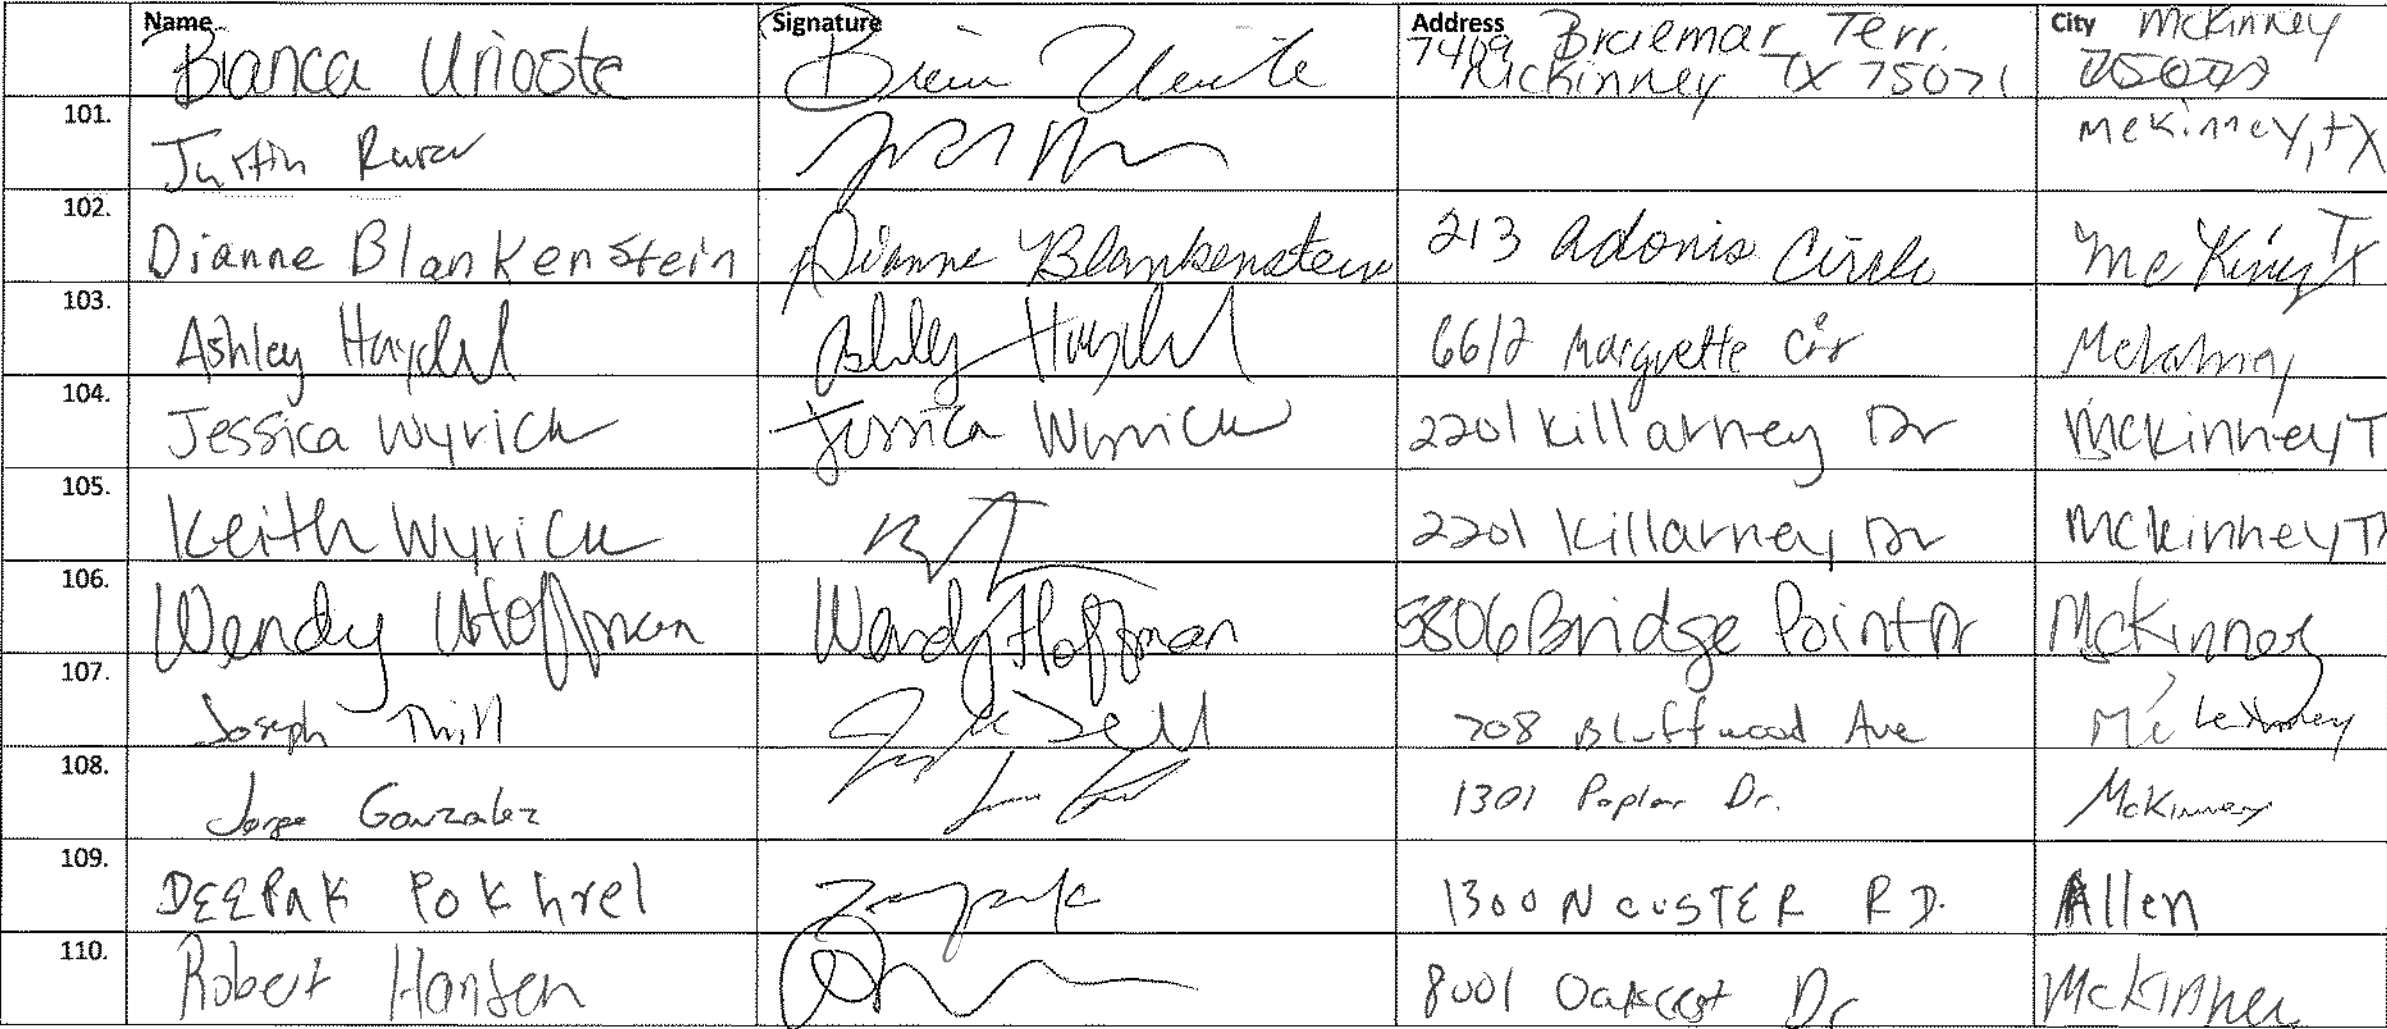 Name Signature Address City
Bianca Urioste 7409 Braemar Terr. McKinney TX 75071 McKinney
101. Justin McKinney, TX
102. Dianne Blankenstein Dianne Blankenstein 213 Adonis Circle McKinney TX
103. Ashley Haydel Ashley Haydel 6612 Marquette Cir McKinney
104. Jessica Wyrick Jessica Wyrick 2201 Killarney Dr McKinney T
105. Keith Wyrick 2201 Killarney Dr McKinney T
106. Wendy Hoffman Wendy Hoffman 5806 Bridge Point Dr McKinney
107. Joseph Thill 708 Bluffwood Ave McKinney
108. Jorge Gonzalez 1301 Poplar Dr. McKinney
109. DEEPAK Pokhrel 1300 N CUSTER RD. Allen
110. Robert Hansen 8001 Oakcrest Dr McKinney